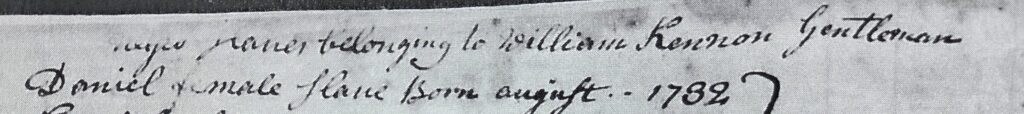 negro slaves belonging to William Kennon Gentleman
Daniel female slave Born august.. 1782